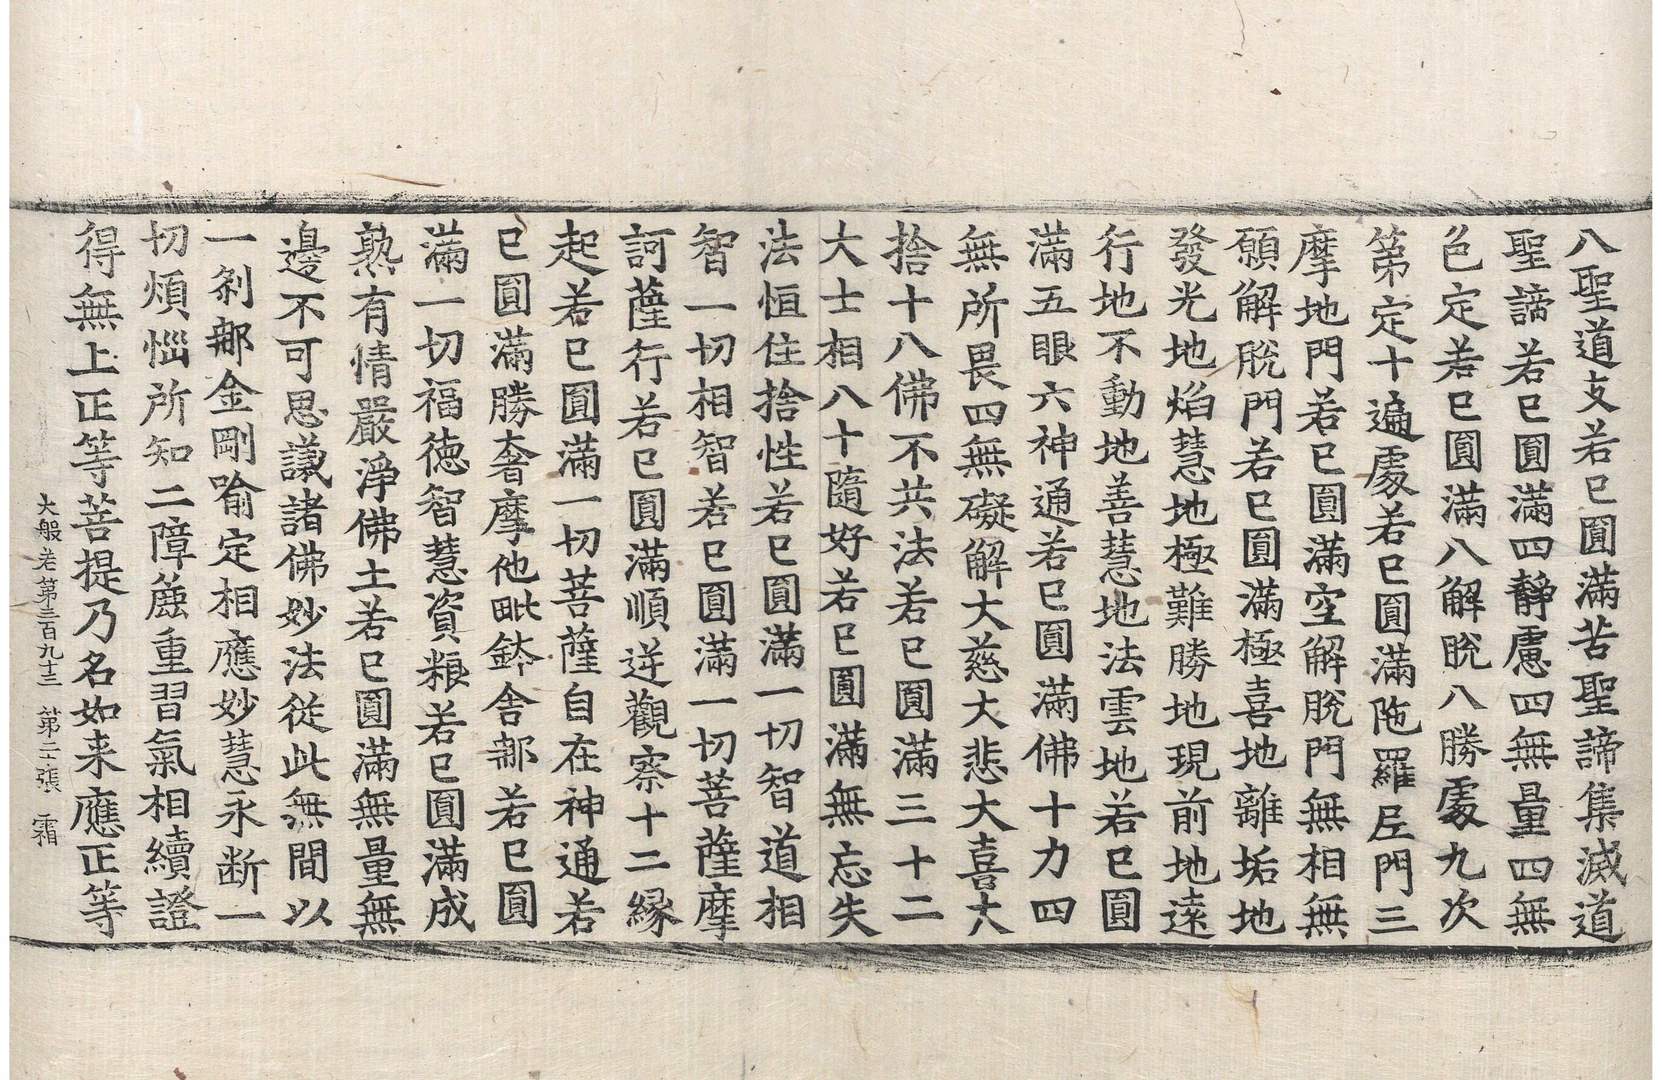 八聖道支若已圓滿苦聖諦集滅道
聖諦若已圓滿四靜慮四無量四無
色定若已圓滿八解脫八勝處九次
第定十遍處若已圓滿陁羅尼門三
摩地門若已圓滿空解脫門無相無
願解脫門若已圓滿極喜地離垢地
發光地焰慧地極難勝地現前地遠
行地不動地善慧地法雲地若已圓
滿五眼六神通若已圓滿佛十力四
無所畏四無礙解大慈大悲大喜大
捨十八佛不共法若已圓滿三十二
大士相八十隨好若已圓滿無忘失
法恒住捨性若已圓滿一切智道相
智一切相智若已圓滿一切菩薩摩
訶薩行若已圓滿順逆觀察十二緣
起若已圓滿一切菩薩自在神通若
已圓滿勝奢摩他毗鉢舍那若已圓
滿一切福德智慧資粮若已圓滿成
熟有情嚴淨佛土若已圓滿無量無
邊不可思議諸佛妙法從此無間以
一剎那金剛喻定相應妙慧永断一
切煩惱所知二障麁重習氣相續證
得無上正等菩提乃名如来應正等
大般若第三百九十三 第二十張 霜